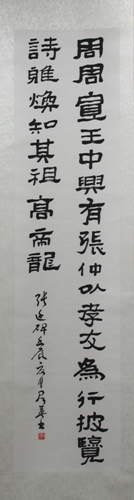 周周宣王中興有張仲以孝友為行披覽
詩雅煥知其祖高帝龍
張遷碑